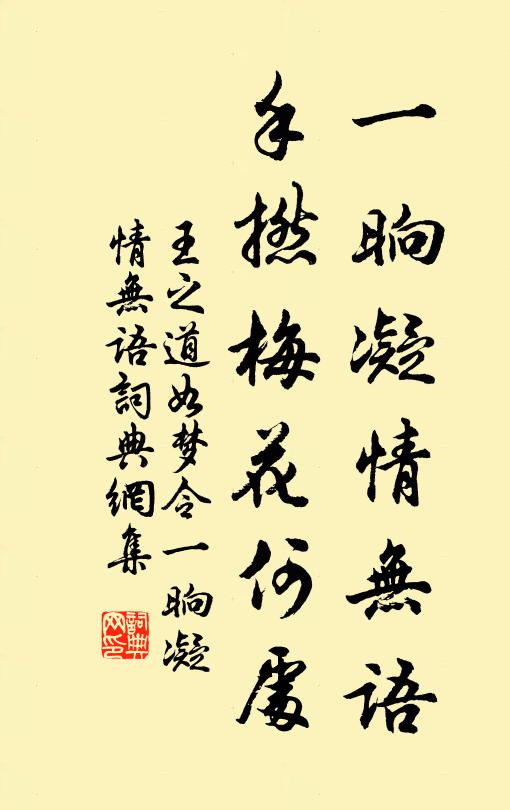 一晌凝情無語
手撚梅花何處
王之道如梦令一晌凝
情無語詞典網集
詞典网印